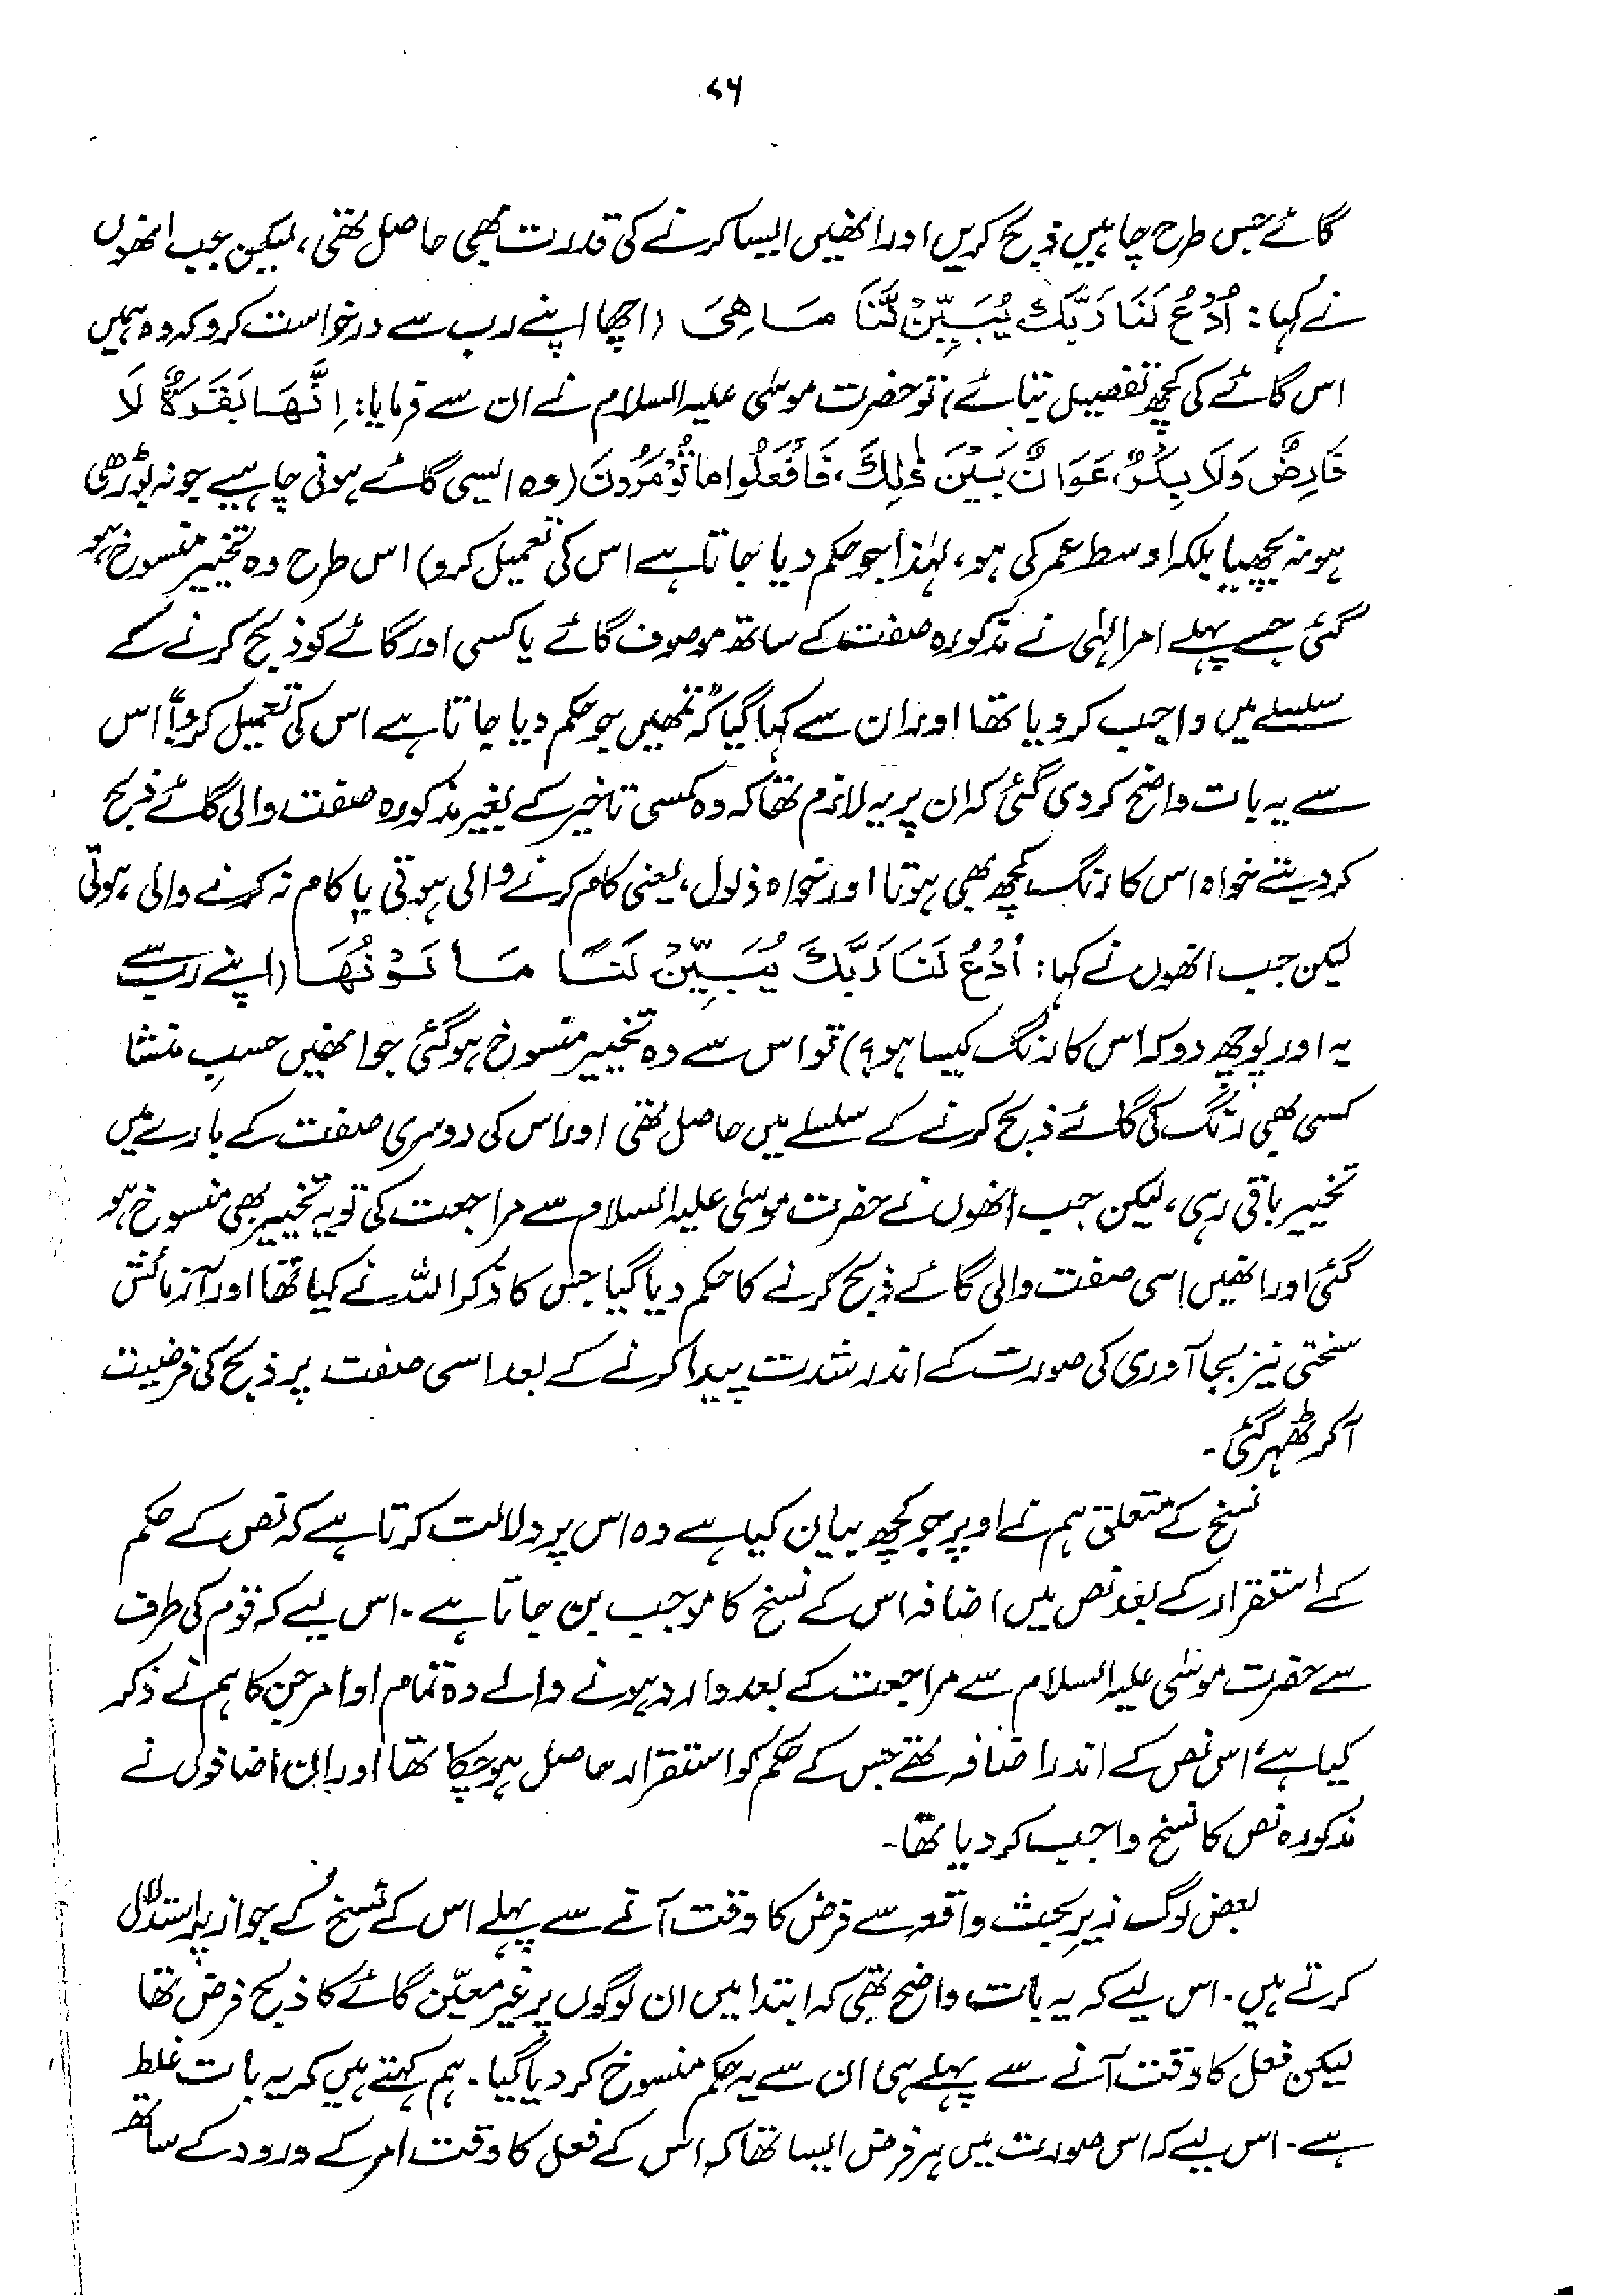 ۷۶
گائے جس طرح چاہیں ذبح کریں اور انھیں ایسا کرنے کی قدرت بھی حاصل تھی، لیکن جب انھوں
نے کہا: اُدْعُ لَنَا رَبَّكَ يُبَيِّنْ لَّنَا مَا هِيَ (اچھا اپنے رب سے درخواست کرو کہ وہ ہمیں
اس گائے کی کچھ تفصیل بتائے) تو حضرت موسیٰ علیہ السلام نے ان سے فرمایا: اِنَّهَا بَقَرَةٌ لَا
فَارِضٌ وَلَا بِكْرٌ، عَوَانٌ بَيْنَ ذٰلِكَ، فَافْعَلُوا مَا تُؤْمَرُوْنَ (وہ ایسی گائے ہونی چاہیے جو نہ بوڑھی
ہو نہ بچھیا بلکہ اوسط عمر کی ہو، لہٰذا جو حکم دیا جاتا ہے اس کی تعمیل کرو) اس طرح وہ تخییر منسوخ ہو
گئی جسے پہلے امر الٰہی نے مذکورہ صفت کے ساتھ موصوف گائے یا کسی اور گائے کو ذبح کرنے کے
سلسلے میں واجب کر دیا تھا اور ان سے کہا گیا کہ "تمھیں جو حکم دیا جاتا ہے اس کی تعمیل کرو" اس
سے یہ بات واضح کر دی گئی کہ ان پر یہ لازم تھا کہ وہ کسی تاخیر کے بغیر مذکورہ صفت والی گائے ذبح
کر دیتے خواہ اس کا رنگ کچھ بھی ہوتا اور خواہ ذلول، یعنی کام کرنے والی ہوتی یا کام نہ کرنے والی ہوتی
لیکن جب انھوں نے کہا: اُدْعُ لَنَا رَبَّكَ يُبَيِّنْ لَنَا مَا لَوْنُهَا (اپنے رب سے
یہ اور پوچھ دو کہ اس کا رنگ کیسا ہو؟) تو اس سے وہ تخییر منسوخ ہو گئی جو انھیں حسبِ منشا
کسی بھی رنگ کی گائے ذبح کرنے کے سلسلے میں حاصل تھی اور اس کی دوسری صفت کے بارے میں
تخییر باقی رہی، لیکن جب انھوں نے حضرت موسیٰ علیہ السلام سے مراجعت کی تو یہ تخییر بھی منسوخ ہو
گئی اور انھیں اسی صفت والی گائے ذبح کرنے کا حکم دیا گیا جس کا ذکر اللہ نے کیا تھا اور آزمائش
سختی نیز بجا آوری کی صورت کے اندر شدت پیدا کرنے کے بعد اسی صفت پر ذبح کی فرضیت
آکر ٹھہر گئی۔
نسخ کے متعلق ہم نے اوپر جو کچھ بیان کیا ہے وہ اس پر دلالت کرتا ہے کہ نص کے حکم
کے استقرار کے بعد نص میں اضافہ اس کے نسخ کا موجب بن جاتا ہے۔ اس لیے کہ قوم کی طرف
سے حضرت موسیٰ علیہ السلام سے مراجعت کے بعد وارد ہونے والے وہ تمام اوامر جن کا ہم نے ذکر
کیا ہے، اس نص کے اندر اضافہ تھے جس کے حکم کو استقرار حاصل ہو چکا تھا اور ان اضافوں نے
مذکورہ نص کا نسخ واجب کر دیا تھا۔
بعض لوگ زیرِ بحث واقعہ سے فرض کا وقت آنے سے پہلے اس کے نسخ کے جواز پر استدلال
کرتے ہیں۔ اس لیے کہ یہ بات واضح تھی کہ ابتدا میں ان لوگوں پر غیر معیّن گائے کا ذبح فرض تھا
لیکن فعل کا وقت آنے سے پہلے ہی ان سے یہ حکم منسوخ کر دیا گیا۔ ہم کہتے ہیں کہ یہ بات غلط
ہے۔ اس لیے کہ اس صورت میں ہر فرض ایسا تھا کہ اس کے فعل کا وقت امر کے ورود کے ساتھ